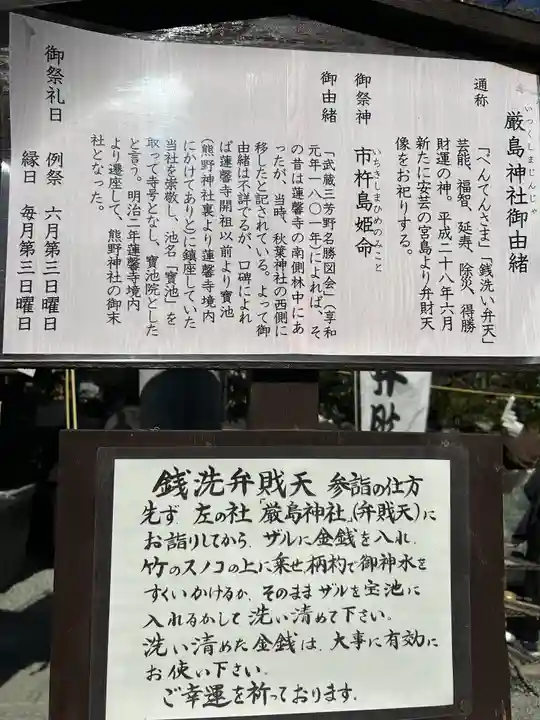 厳島神社御由緒
いつくしまじんじゃ
通称 「べんてんさま」「銭洗い弁天」
芸能、福智、延寿、除災、得勝
財運の神。平成二十八年六月
新たに安芸の宮島より弁財天
像をお祀りする。
御祭神 市杵島姫命
いちきしまひめのみこと
御由緒
「武蔵三芳野名勝図会」(享和
元年一八〇一年)によれば、そ
の昔は蓮馨寺の南側林中にあ
ったが、当時、秋葉神社の西側に
移したと記されている。よって御
由緒は不詳でるが、口碑によれ
ば蓮馨寺開祖以前より寳池
(熊野神社裏より蓮馨寺境内
にかけてありと)に鎮座していた
当社を崇敬し、池名「寳池」を
取って寺号となし、寳池院とした
と言う。明治二年蓮馨寺境内
より遷座して、熊野神社の御末
社となった。
御祭礼日 例祭 六月第三日曜日
縁日 毎月第三日曜日
弁財
銭洗弁財天 参詣の仕方
先ず左の社「厳島神社」(弁財天)に
お詣りしてから、ザルに金銭を入れ
竹のスノコの上に乗せ柄杓で御神水を
すくいかけるか、そのままザルを宝池に
入れるかして洗い清めて下さい。
洗い清めた金銭は、大事に有効に
お使い下さい。
ご幸運を祈っております。